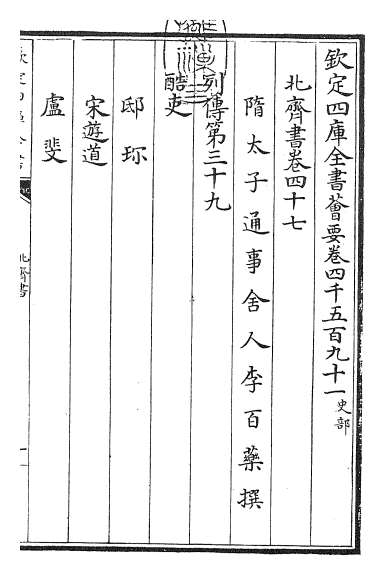 欽定四庫全書薈要卷四千五百九十一史部
北齊書卷四十七
隋太子通事舍人李百藥撰
列傳第三十九
酷吏
邸珎
宋遊道
盧斐
北齊書